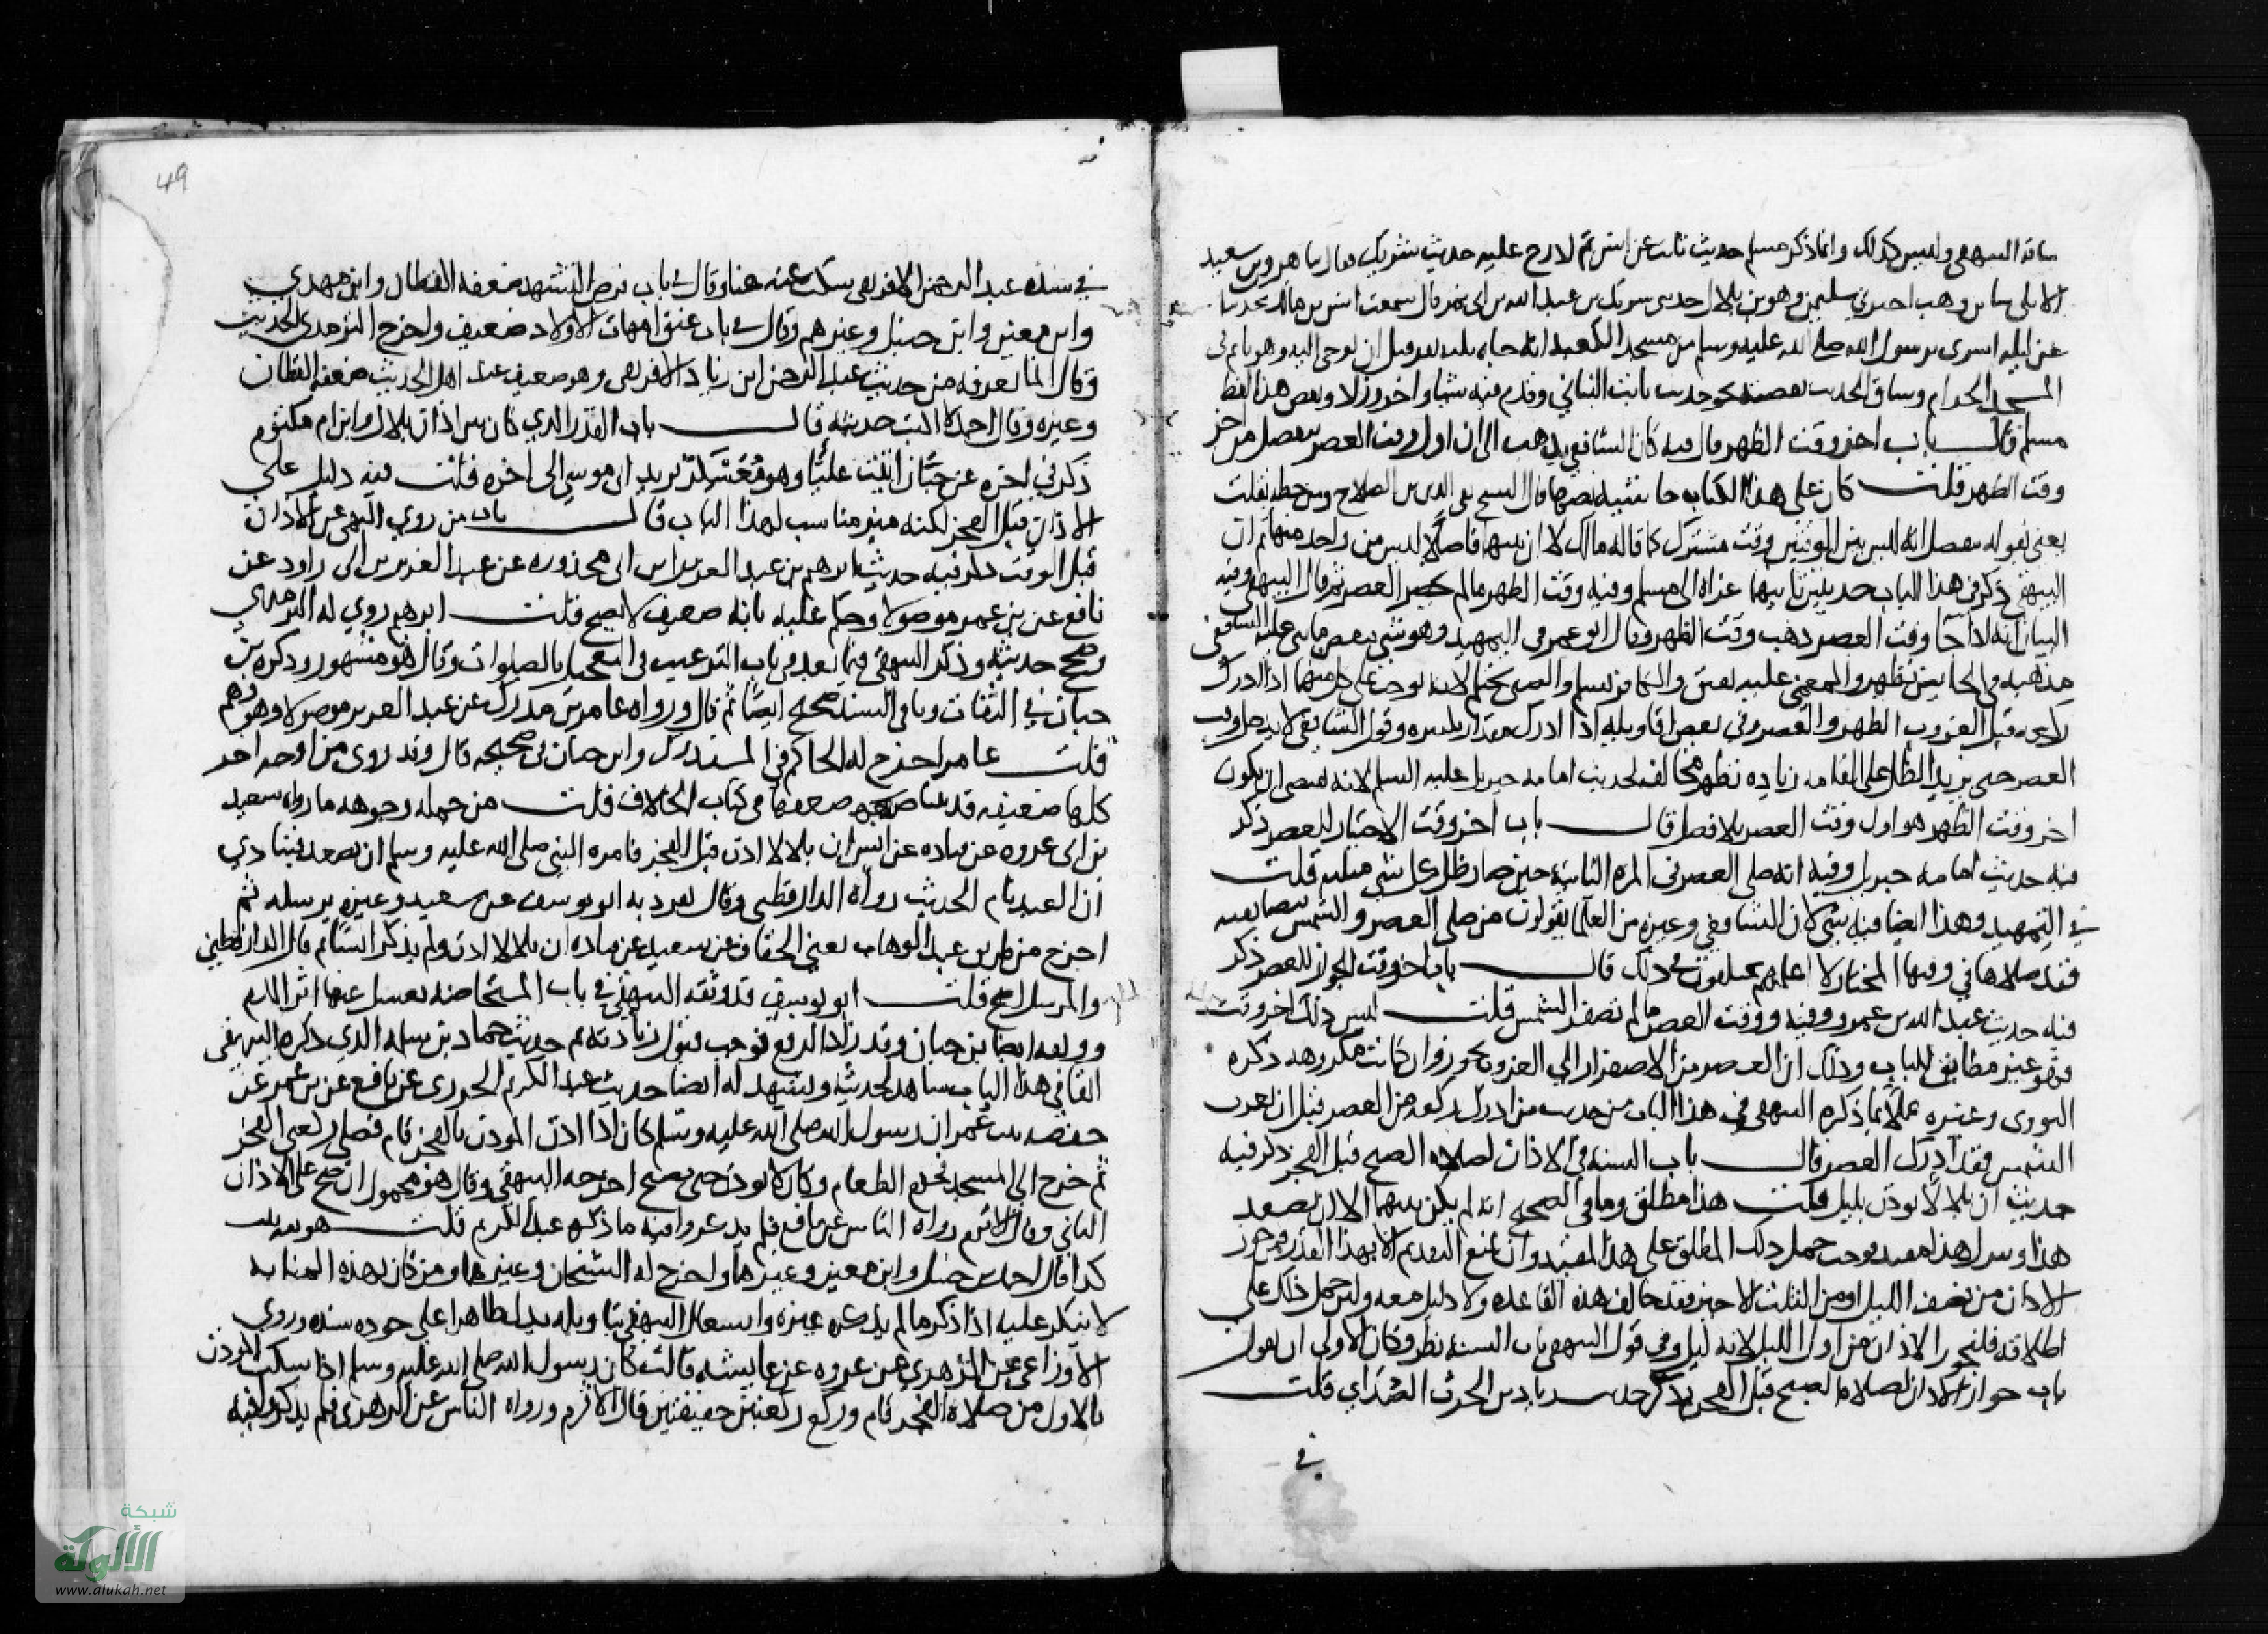 ساقه البيهقي وليس كذلك وانما ذكر مسلم حديث ثابت عن انس ثم لارح عليه حديث شريك فقال نا هرون بن سعيد
الايلي نا بن وهب اخبرني سليمن وهو بن بلال حدثني شريك بن عبد الله بن ابي نمر قال سمعت انس بن مالك يحدثنا
عن ليله اسري برسول الله صلى الله عليه وسلم من مسجد الكعبه انه جاه ثلثه نفر قبل ان يوحى اليه وهو نايم في
المسجد الحرام وساق الحديث بقصته نحو حديث ثابت البناني وقدم فيه شيا واخر وزاد ونقص هذا لفظ
مسلم قال باب اخر وقت الظهر قال فيه كان الشافعي يذهب الى ان اول وقت العصر ينفصل من اخر
وقت الظهر قلت كان على هذا الكتاب حاشيه نصها قال الشيخ تقي الدين بن الصلاح ومن خطه نقلت
يعني بقوله ينفصل انه ليس بين الوقتين وقت مشترك كما قاله مالك لا ان بينهما فاصلا ليس من واحد منهما ثم ان
البيهقي ذكر في هذا الباب حديثين ثانيهما عزاه الى مسلم وفيه وقت الظهر ما لم يحضر العصر ثم قال البيهقي وفيه
البيان انه اذا جا وقت العصر ذهب وقت الظهر وقال ابو عمر في التمهيد وهو شي ينقض ما بنى عليه الشافعي
مذهبه في الحايض تطهر والمغمى عليه يفيق والكافر يسلم والصبي يحتلم لانه يوجب على كل منهما اذا ادرك
ركعه قبل الغروب الظهر والعصر وفي بعض اقاويله اذا ادرك مقدار تكبيره وقول الشافعي لا يدخل وقت
العصر حتى يزيد الظل على القامه زياده تظهر مخالف لحديث امامه جبريل عليه السلم لانه يقتضي ان يكون
اخر وقت الظهر هو اول وقت العصر بلا فصل قال باب اخر وقت الاختيار للعصر ذكر
فيه حديث امامه جبريل وفيه انه صلى العصر في المره الثانيه حين صار ظل كل شي مثليه قلت
في التمهيد وهذا ايضا فيه شي كان الشافعي وغيره من العلما يقولون من صلى العصر والشمس بيضا نقيه
فقد صلاها في وقتها المختار لا اعلمهم يختلفون في ذلك قال باب اخر وقت الجواز للعصر ذكر
فيه حديث عبد الله بن عمرو وفيه ووقت العصر ما لم تصفر الشمس قلت ليس ذلك اخر وقت
فهو غير مطابق للباب وذلك ان العصر من الاصفرار الى الغروب يجوز وان كانت مكروهه ذكره
النووي وغيره عملا بما ذكره البيهقي في هذا الباب من حديث من ادرك ركعه من العصر قبل ان تغرب
الشمس فقد ادرك العصر قال باب السنه في الاذان لصلاه الصبح قبل الفجر ذكر فيه
حديث ان بلالا يوذن بليل قلت هذا مطلق وما في الصحيح انه لم يكن بينهما الا ان يصعد
هذا وينزل هذا مقيد فوجب حمل ذلك المطلق على هذا المقيد وان يمنع التقديم الا بهذا القدر فمن جوز
الاذان من نصف الليل او من الثلث الاخير فقد خالف هذه القاعده ولا دليل معه ولين حمل ذلك على
اطلاقه فليجوز الاذان من اول الليل لانه ليل وفي قول البيهقي باب السنه نظر وكان الاولى ان يقول
باب جواز الاذان لصلاه الصبح قبل الفجر ثم ذكر حديث زياد بن الحرث الصداي قلت
في
49
في سنده عبد الرحمن الافريقي سكت عنه هنا وقال في باب فرض التشهد ضعفه القطان وابن مهدي
وابن معين وابن حنبل وغيرهم وقال في باب عتق امهات الاولاد ضعيف واخرج الترمذي الحديث
وقال انما نعرفه من حديث عبد الرحمن ابن زياد الافريقي وهو ضعيف عند اهل الحديث ضعفه القطان
وغيره وقال احمد لا اكتب حديثه قال باب القدر الذي كان بين اذان بلال وابن ام مكتوم
ذكر في اخره عن حبان اتيت عليا وهو معسكر بدير ابي موسى الى اخره قلت فيه دليل على
الاذان قبل الفجر لكنه غير مناسب لهذا الباب قال باب من روى النهي عن الاذان
قبل الوقت ذكر فيه حديث ابرهيم بن عبد العزيز بن ابي محذوره عن عبد العزيز بن ابي راود عن
نافع عن بن عمر موصولا وحكم عليه بانه ضعيف لا يصح قلت ابرهيم روى له الترمذي
وصحح حديثه وذكر البيهقي فيما بعد في باب الترغيب في التعجيل بالصلوات وقال هو مشهور وذكره بن
حبان في الثقات وباقي السند صحيح ايضا ثم قال ورواه عامر بن مدرك عن عبد العزيز موصولا وهو وهم
قلت عامر اخرج له الحاكم في المستدرك وابن حبان في صحيحه قال وقد روي من اوجه اخر
كلها ضعيفه قد بينا ضعفها في كتاب الخلاف قلت من جمله وجوهه ما رواه سعيد
بن ابي عروه عن قتاده عن انس ان بلالا اذن قبل الفجر فامره النبي صلى الله عليه وسلم ان يصعد فينادي
ان العبد نام الحديث رواه الدارقطني وقال تفرد به ابو يوسف عن سعيد وغيره يرسله ثم
اخرج من طريق عبد الوهاب يعني الخفاف عن سعيد عن قتاده ان بلالا اذن ولم يذكر انسا ثم قال الدارقطني
والمرسل اصح قلت ابو يوسف قد وثقه البيهقي في باب المستحاضه تغسل عنها اثر الدم
ووثقه ايضا بن حبان وقد زاد الرفع فوجب قبول زيادته ثم حديث حماد بن سلمه الذي ذكره البيهقي
انفا في هذا الباب شاهد لحديثه ويشهد له ايضا حديث عبد الكريم الجزري عن نافع عن بن عمر عن
حفصه بنت عمر ان رسول الله صلى الله عليه وسلم كان اذا اذن الموذن بالفجر قام فصلى ركعتي الفجر
ثم خرج الى المسجد فحرم الطعام وكان لا يوذن حتى يصبح اخرجه البيهقي وقال هو محمول ان صح على الاذان
الثاني وقال الاثرم رواه الناس عن نافع فلم يذكروا فيه ما ذكره عبد الكريم قلت هو ثقه ثبت
كذا قال احمد بن حنبل وابن معين وغيرهما واخرج له الشيخان وغيرهما ومن كان بهذه المثابه
لا ينكر عليه اذا ذكر ما لم يذكره غيره واشتغال البيهقي بتاويله يدل ظاهرا على جوده سنده وروى
الاوزاعي عن الزهري عن عروه عن عايشه قالت كان رسول الله صلى الله عليه وسلم اذا سكت الموذن
بالاول من صلاه الفجر قام وركع ركعتين خفيفتين قال الاثرم ورواه الناس عن الزهري فلم يذكروا فيه
شبكة
الألوكة
www.alukah.net